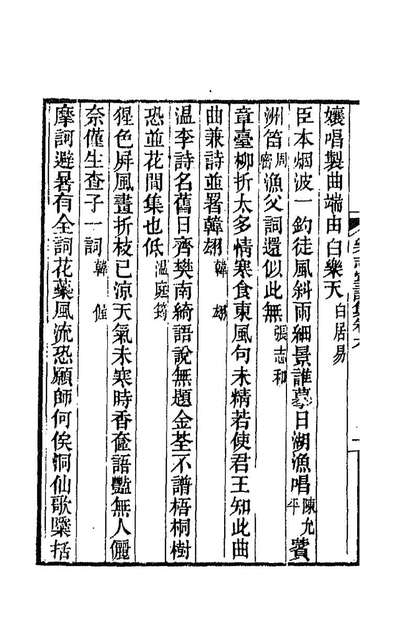 孃唱製曲端由白樂天白居易
臣本烟波一釣徒風斜雨細景誰摹日湖漁唱陳允平蘋
洲笛周密漁父詞還似此無張志和
章臺柳折太多情寒食東風句未精若使君王知此曲
曲兼詩並署韓翃韓翃
温李詩名舊日齊樊南綺語說無題金荃不譜梧桐樹
恐並花間集也低温庭筠
猩色屏風畫折枝已涼天氣未寒時香奩語豔無人儷
奈僅生查子一詞韓偓
摩訶避暑有全詞花蕊風流恐願師何俟洞仙歌檃括